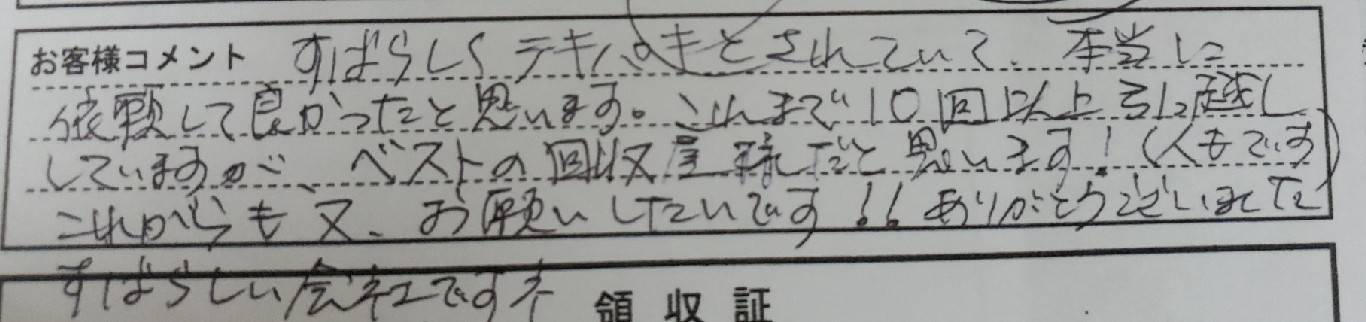 お客様コメント すばらしくテキパキとされていて、本当に
依頼して良かったと思います。これまで10回以上引越し
していますが、ベストの回収屋様だと思います！（人もです）
これからも又、お願いしたいです！！ありがとうございました
すばらしい会社ですネ
領収証